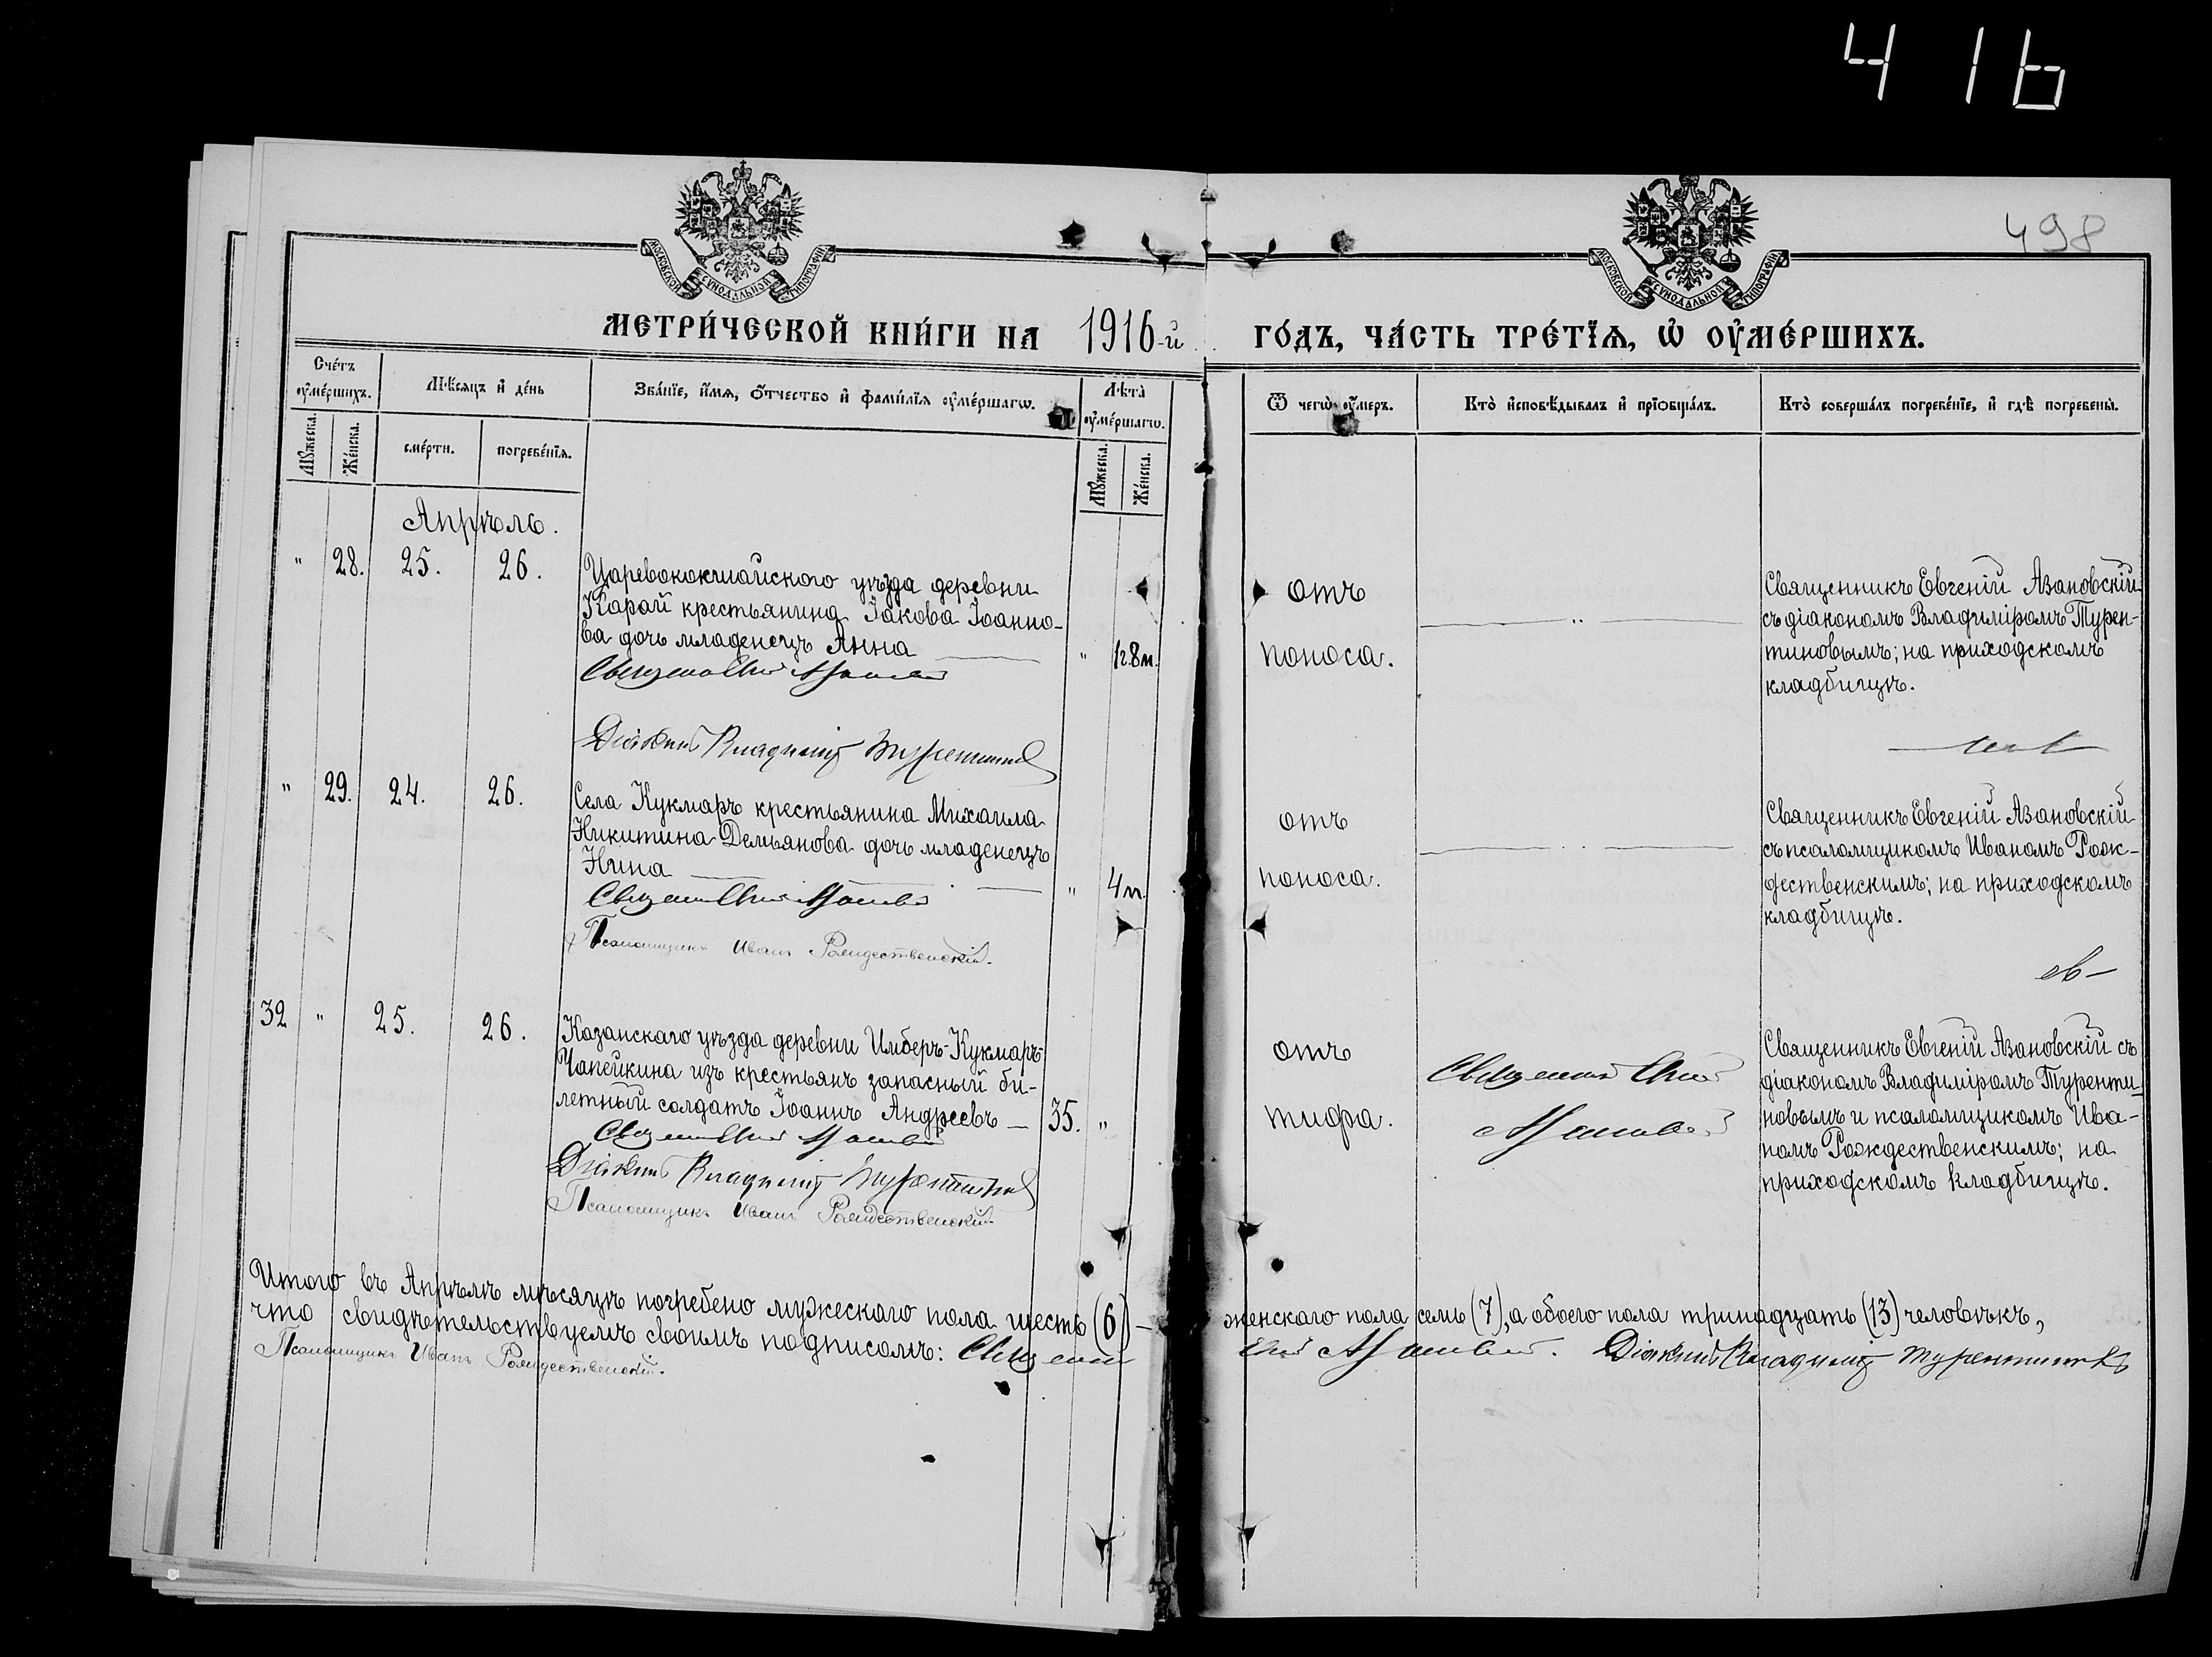 4 16
498
МОСКОВСКОЙ СѴНОДАЛЬНОЙ ТИПОГРАФІИ
МОСКОВСКОЙ СѴНОДАЛЬНОЙ ТИПОГРАФІИ
МЕТРИ́ЧЕСКОЙ КНИ́ГИ НА 1916-й ГО́ДЪ, ЧА́СТЬ ТРЕ́ТЇѦ, Ѡ҆ ОУ҆МЕ́РШИХЪ.
Сче́тъ оу҆ме́ршихъ.
Мꙋ́жеска.
Же́нска.
Мѣ́сяцъ и҆ де́нь
сме́рти.
погребе́нїѧ.
Зва́нїе, и҆́мѧ, ѻ҆́тчество и҆ фами́лїѧ оу҆ме́ршагѡ.
Лѣ́та оу҆ме́ршагѡ.
Мꙋ́жеска.
Же́нска.
Ѿ чегѡ̀ оу҆́меръ.
Кто̀ и҆сповѣ́дывалъ и҆ прїѡбща́лъ.
Кто̀ соверша́лъ погребе́нїе, и҆ гдѣ̀ погребены̀.
Апрѣль.
" 28. 25. 26.
Царевококшайскаго уѣзда деревни
Карай крестьянина Іакова Іоанно-
ва дочь младенецъ Анна
" 1г.8м.
Діаконъ Владиміръ Турентиновъ
отъ
поноса.
"
Священникъ Евгеній Азановскій
съ діакономъ Владиміромъ Турен-
тиновымъ; на приходскомъ
кладбищѣ.
" 29. 24. 26.
Села Кукмаръ крестьянина Михаила
Никитина Демьянова дочь младенецъ
Нина
" 4м.
Псаломщикъ Иванъ Рождественскій.
отъ
поноса.
Священникъ Евгеній Азановскій
съ псаломщикомъ Иваномъ Рож-
дественскимъ; на приходскомъ
кладбищѣ.
32 " 25. 26.
Казанскаго уѣзда деревни Имберъ-Кукмаръ-
Чапейкина изъ крестьянъ запасный би-
летный солдатъ Іоаннъ Андреевъ —
35. "
Діаконъ Владиміръ Турентиновъ
Псаломщикъ Иванъ Рождественскій.
отъ
тифа.
Священникъ Евгеній Азановскій съ
діакономъ Владиміромъ Туренти-
новымъ и псаломщикомъ Ива-
номъ Рождественскимъ; на
приходскомъ кладбищѣ.
Итого въ Апрѣлѣ мѣсяцѣ погребено мужескаго пола шесть (6) — женскаго пола семь (7), а обоего пола тринадцать (13) человѣкъ,
что свидѣтельствуемъ своимъ подписомъ: Священникъ Азановскій. Діаконъ Владиміръ Турентиновъ
Псаломщикъ Иванъ Рождественскій.